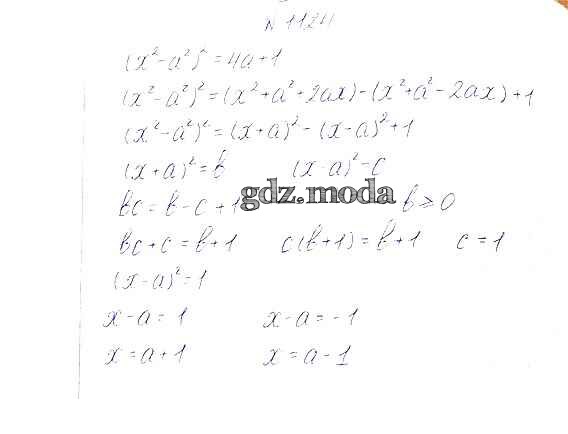 N 1124
(x² - a²)² = 4a + 1
(x² - a²)² = (x² + a² + 2ax) - (x² + a² - 2ax) + 1
(x² - a²)² = (x + a)² - (x - a)² + 1
(x + a)² = b (x - a)² = c
bc = b - c + 1 b ≥ 0
gdz.moda
bc + c = b + 1 c(b + 1) = b + 1 c = 1
(x - a)² = 1
x - a = 1 x - a = -1
x = a + 1 x = a - 1